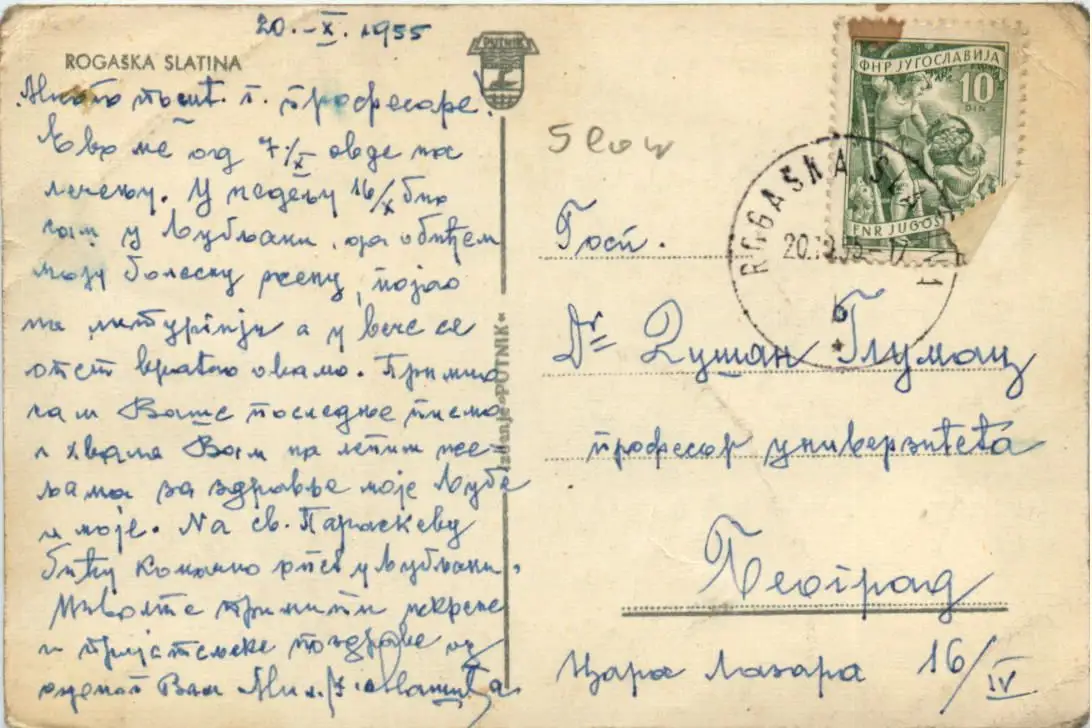 20.-X.1955
ROGAŠKA SLATINA
PUTNIK
Много пошт. г. професоре.
Ево ме од 7/X овде на
лечењу. У недељу 16/X био
сам у Љубљани, да обиђем
моју болесну жену, појао
на литургији а у вече се
опет вратио овамо. Примио
сам Ваше последње писмо
и хвала Вам на лепим же-
љама за здравље моје Љубе
и моје. На св. Параскеву
бићу коначно опет у Љубљани.
Изволте примити искрене
и пријатељске поздраве од
оданог Вам Мил.
Izdanje »PUTNIK«
Slow
ФНР ЈУГОСЛАВИЈА
10
DIN
FNR JUGOS
ROGAŠKA SLA
20.10.55
b
Госп.
Dr Душан Глумац
професор универзитета
Београд
Цара Лазара 16/IV